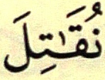 نُقَٰتِلَ